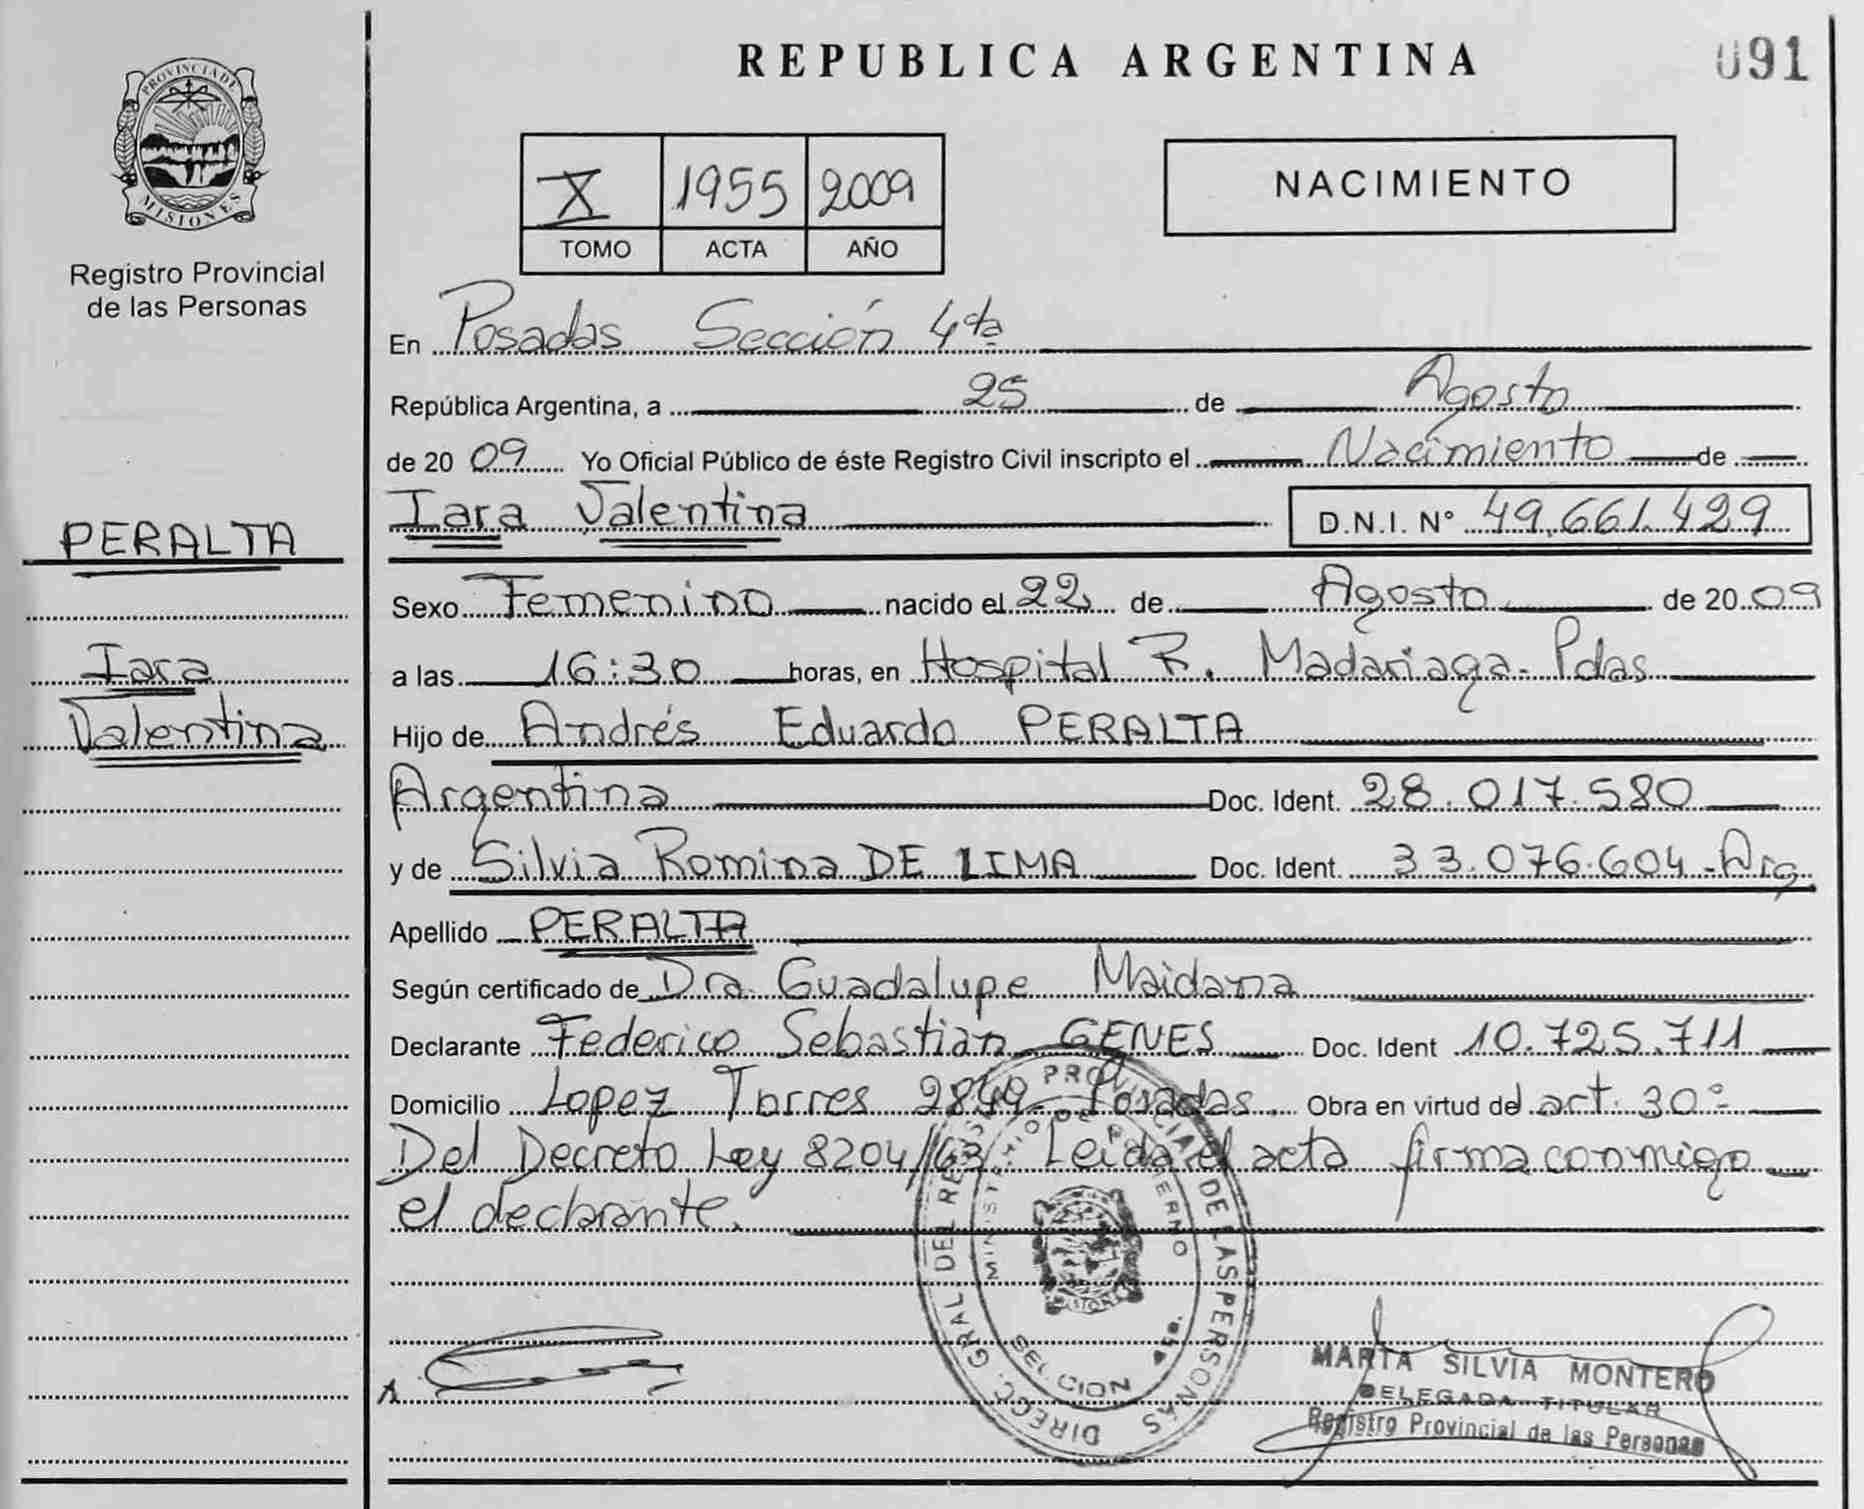 REPUBLICA ARGENTINA
091
PROVINCIA DE
MISIONES
Registro Provincial
de las Personas
X 1955 2009
TOMO ACTA AÑO
NACIMIENTO
En Posadas Sección 4ta
República Argentina, a 25 de Agosto
de 2009 Yo Oficial Público de éste Registro Civil inscripto el Nacimiento de
Iara Valentina D.N.I. N° 49.661.429
PERALTA
Iara
Valentina
Sexo Femenino nacido el 22 de Agosto de 2009
a las 16:30 horas, en Hospital R. Madariaga - Pdas
Hijo de Andrés Eduardo PERALTA
Argentina Doc. Ident. 28.017.580
y de Silvia Romina DE LIMA Doc. Ident. 33.076.604 - Arg.
Apellido PERALTA
Según certificado de Dra. Guadalupe Maidana
Declarante Federico Sebastián GENES Doc. Ident 10.725.711
Domicilio Lopez Torres 2849 - Posadas. Obra en virtud del art. 30°
Del Decreto Ley 8204/63. Leida el acta firma conmigo
el declarante.
DIRECC. GRAL DEL REGISTRO PROVINCIAL DE LAS PERSONAS
MINISTERIO DE GOBIERNO
MISIONES
MARTA SILVIA MONTERO
DELEGADA TITULAR
Registro Provincial de las Personas